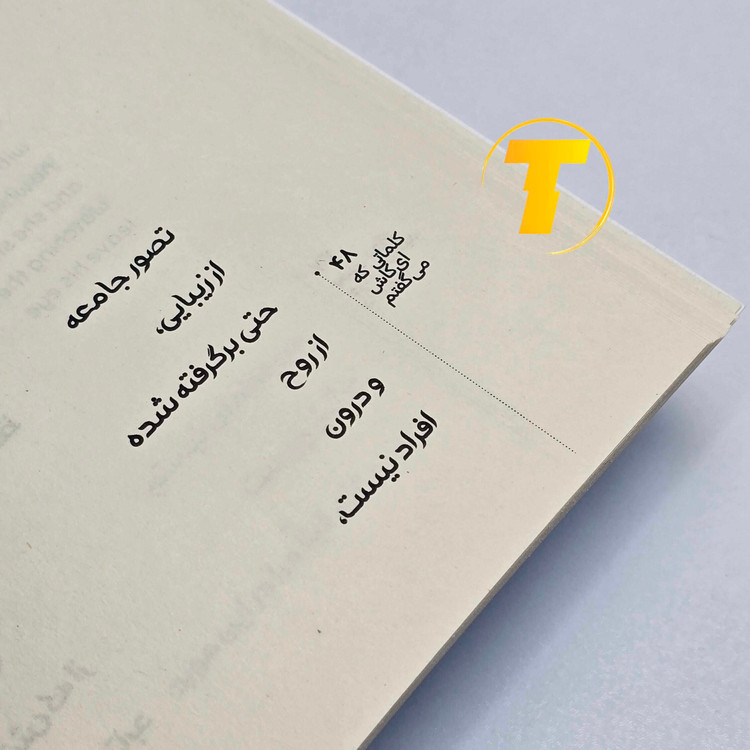 ۴۸
کلماتی که
ای کاش
می گفتم
تصور جامعه
از زیبایی،
حتی برگرفته شده
از روح
و درون
افراد نیست،
T